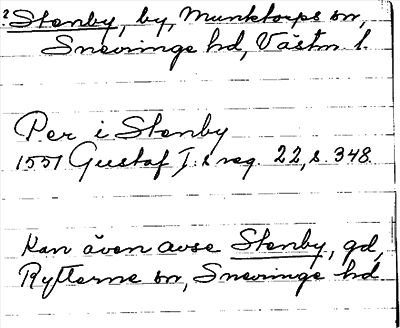 ? Stenby, by, Munktorps sn,
Snevringe hd, Västm l.
Per i Stenby
1551 Gustaf I:s reg. 22, s. 348.
Kan även avse Stenby, gd,
Rytterne sn, Snevringe hd